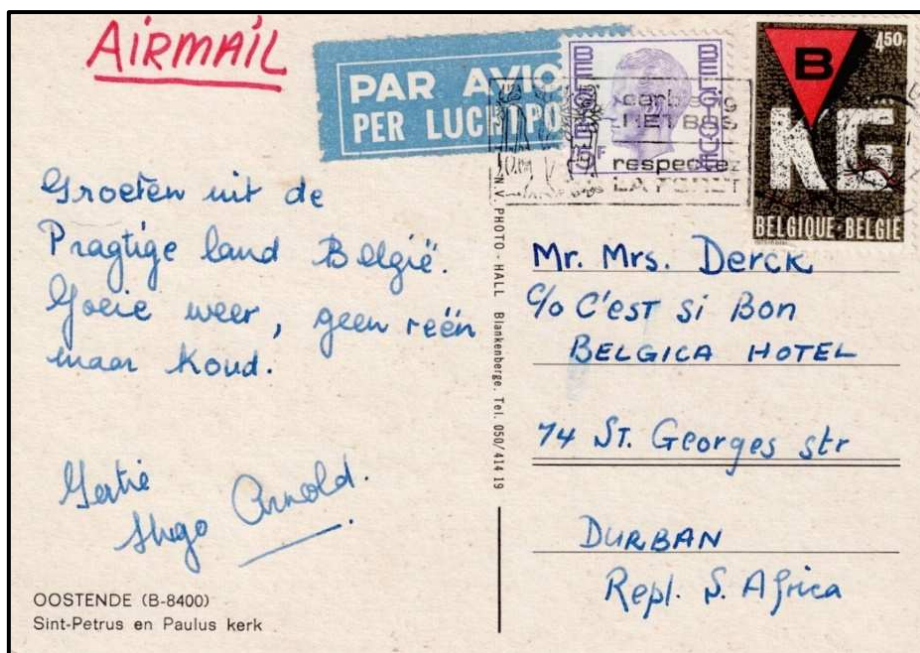 AIRMAIL
PAR AVIO
PER LUCHTPO
BELGIQUE
5F
respectez
LA FORET
HET BOS
4,50
B
KG
BELGIQUE-BELGIE
Groeten uit de
Pragtige land België.
Goeie weer, geen reën
maar koud.
Gertie
Hugo Arnold.
OOSTENDE (B-8400)
Sint-Petrus en Paulus kerk
N.V. PHOTO - HALL Blankenberge. Tel. 050/414 19
Mr. Mrs. Derck
c/o C'EST Si Bon
BELGICA HOTEL
74 ST. Georges str
DURBAN
Repl. S. Africa